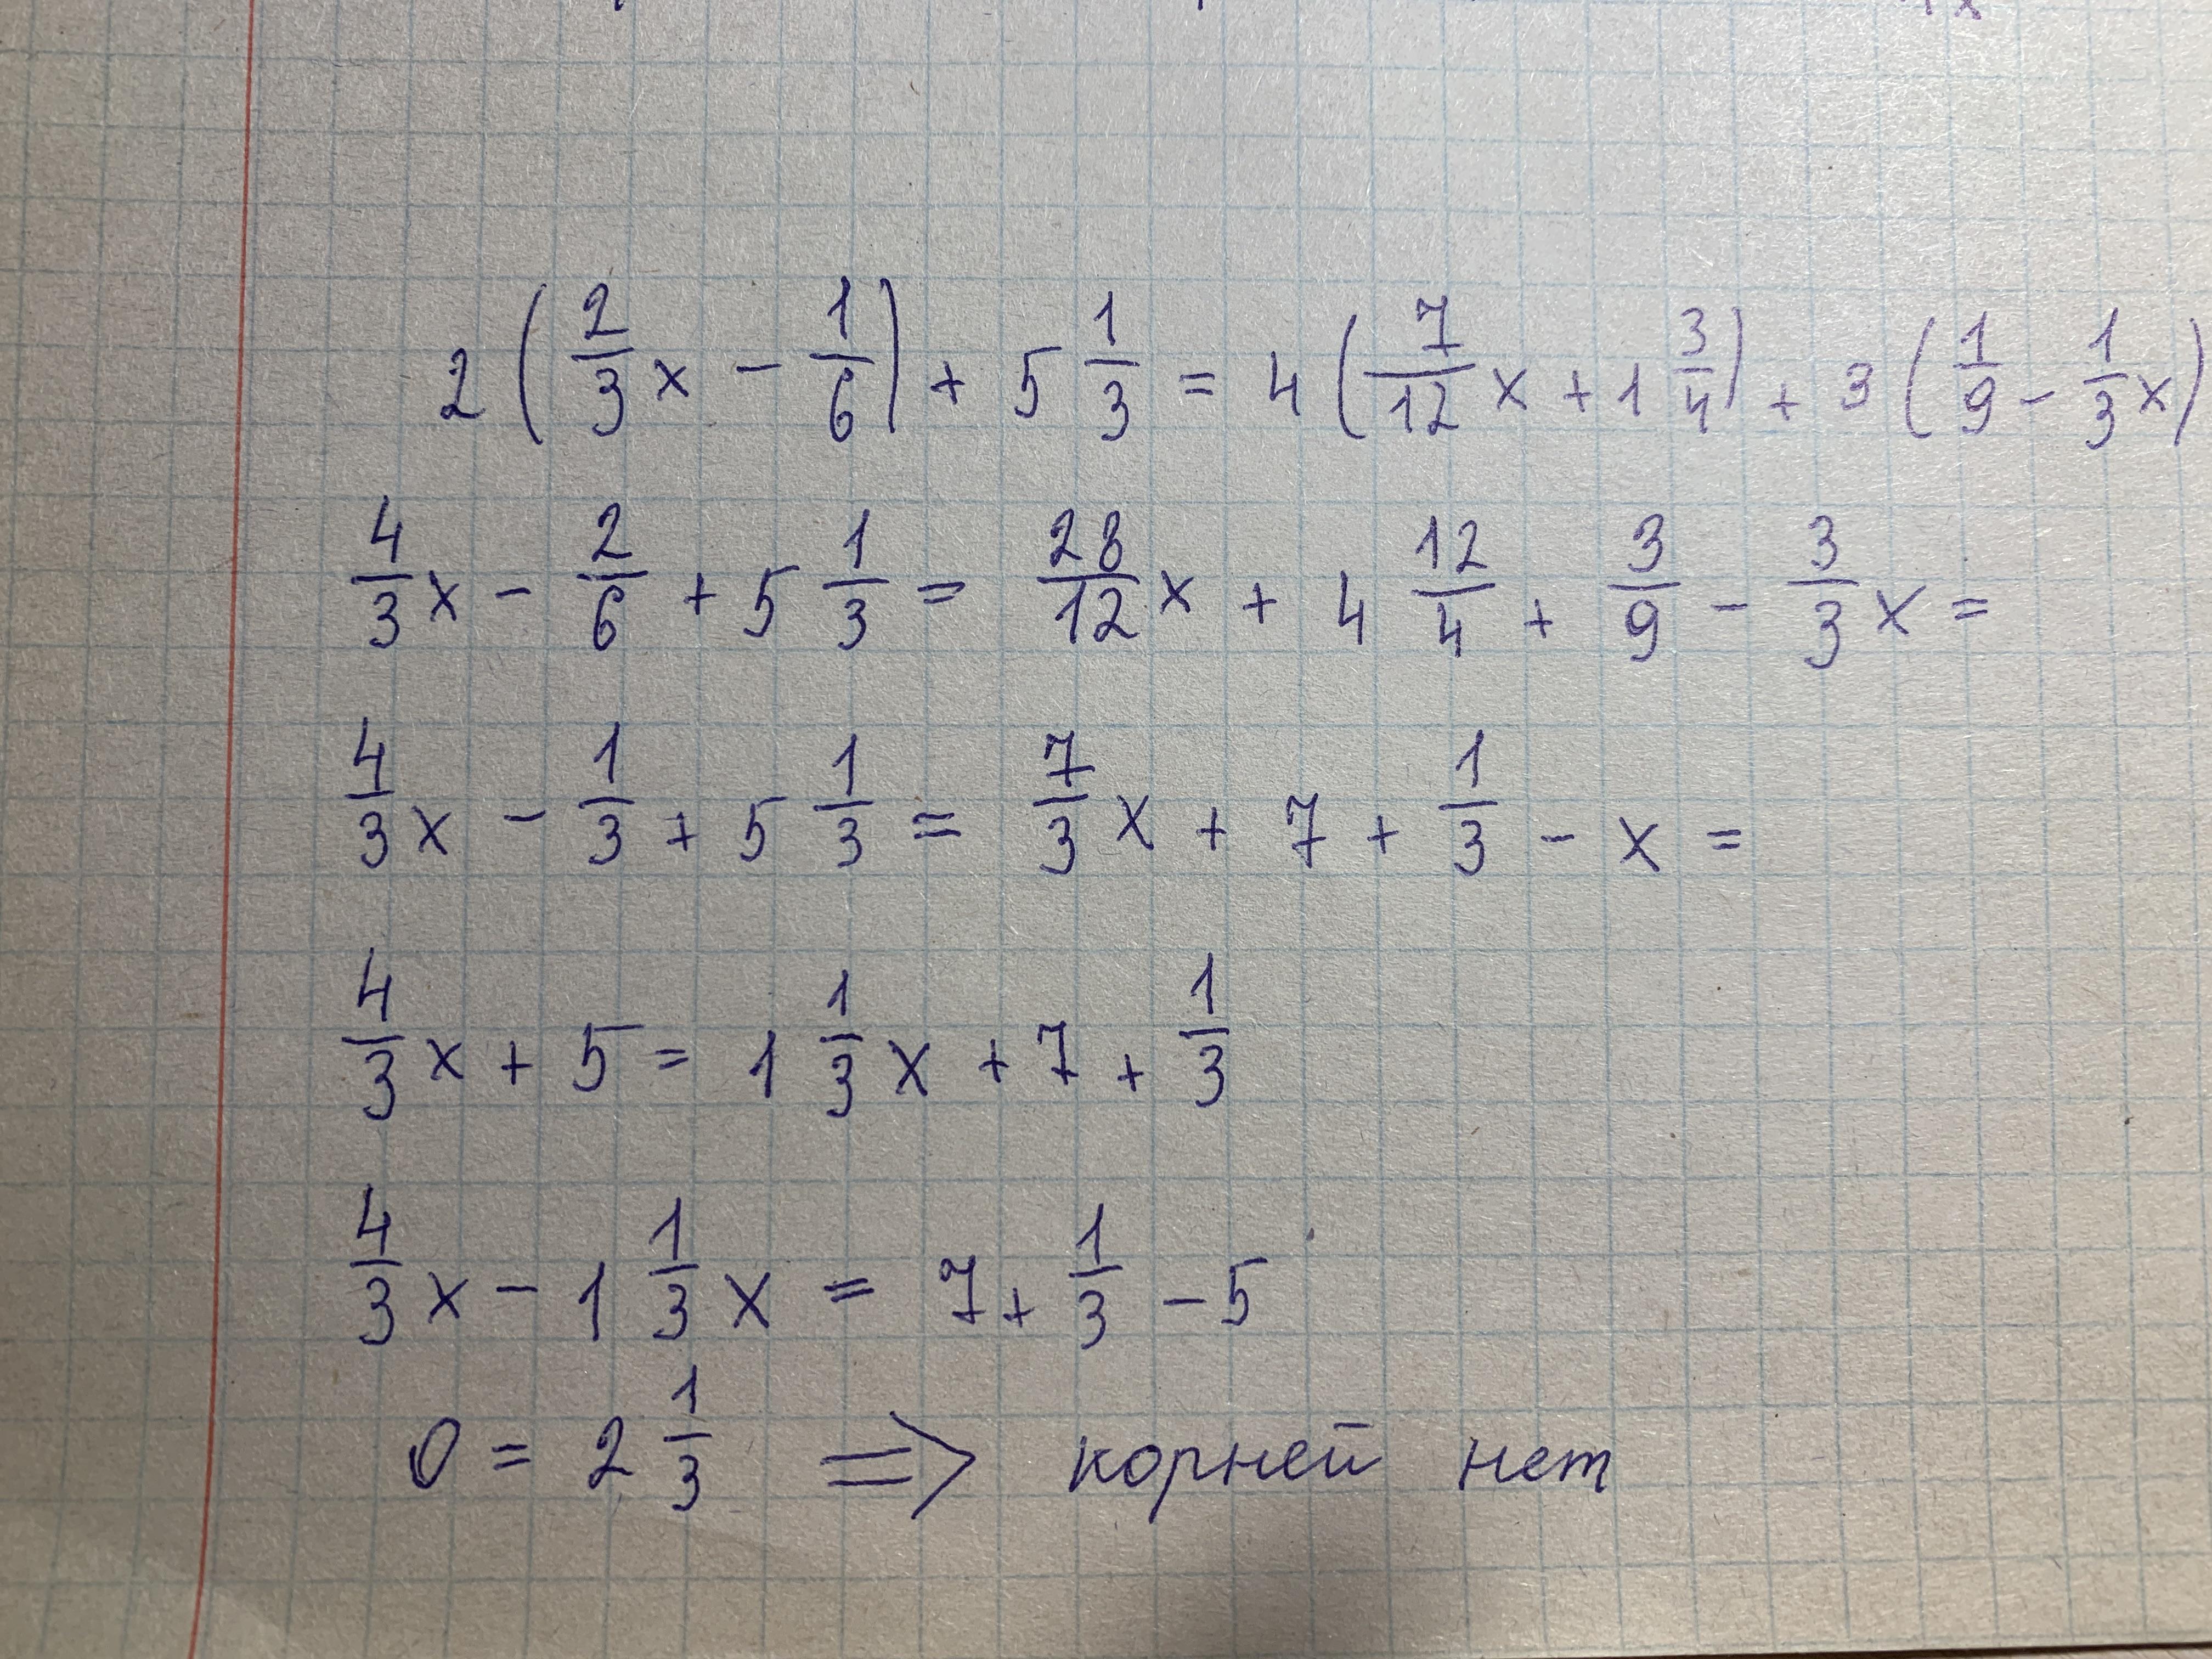 2(2/3 x - 1/6) + 5 1/3 = 4(7/12 x + 1 3/4) + 3(1/9 - 1/3 x)
4/3 x - 2/6 + 5 1/3 = 28/12 x + 4 12/4 + 3/9 - 3/3 x =
4/3 x - 1/3 + 5 1/3 = 7/3 x + 7 + 1/3 - x =
4/3 x + 5 = 1 1/3 x + 7 + 1/3
4/3 x - 1 1/3 x = 7 + 1/3 - 5
0 = 2 1/3 => корней нет